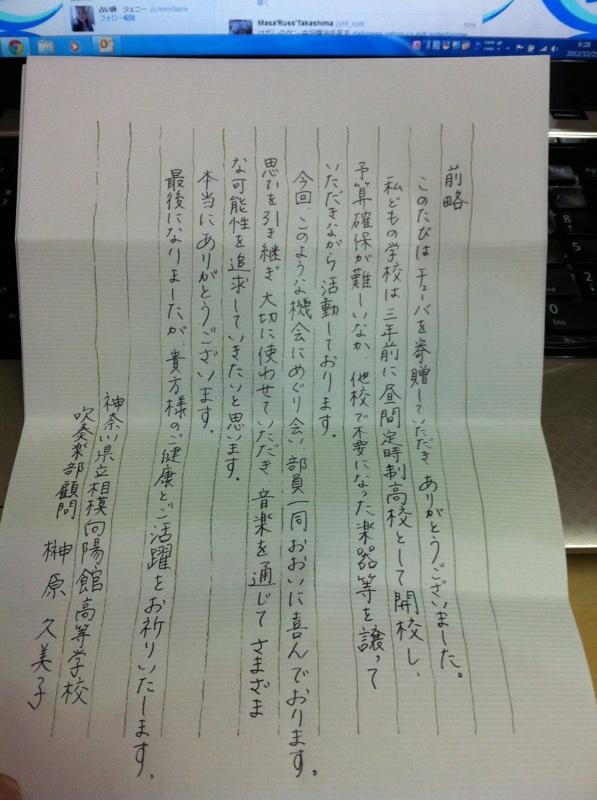 占い師 ジェニー @JennySpica
フォロー解除
Masa'Russ'Takashima
9:28
2012/12/25
前略
このたびは チューバを寄贈していただき ありがとうございました。
私どもの学校は 三年前に昼間定時制高校として開校し、
予算確保が難しいなか、他校で不要になった楽器等を譲って
いただきながら 活動しております。
今回、このような機会にめぐり会い 部員一同 おおいに喜んでおります。
思いを引き継ぎ 大切に使わせていただき 音楽を通じて さまざま
な可能性を追求していきたいと思います。
本当にありがとうございます。
最後になりましたが、貴方様のご健康とご活躍をお祈りいたします。
神奈川県立相模向陽館高等学校
吹奏楽部顧問 榊原 久美子
8
5
2
0
Ins